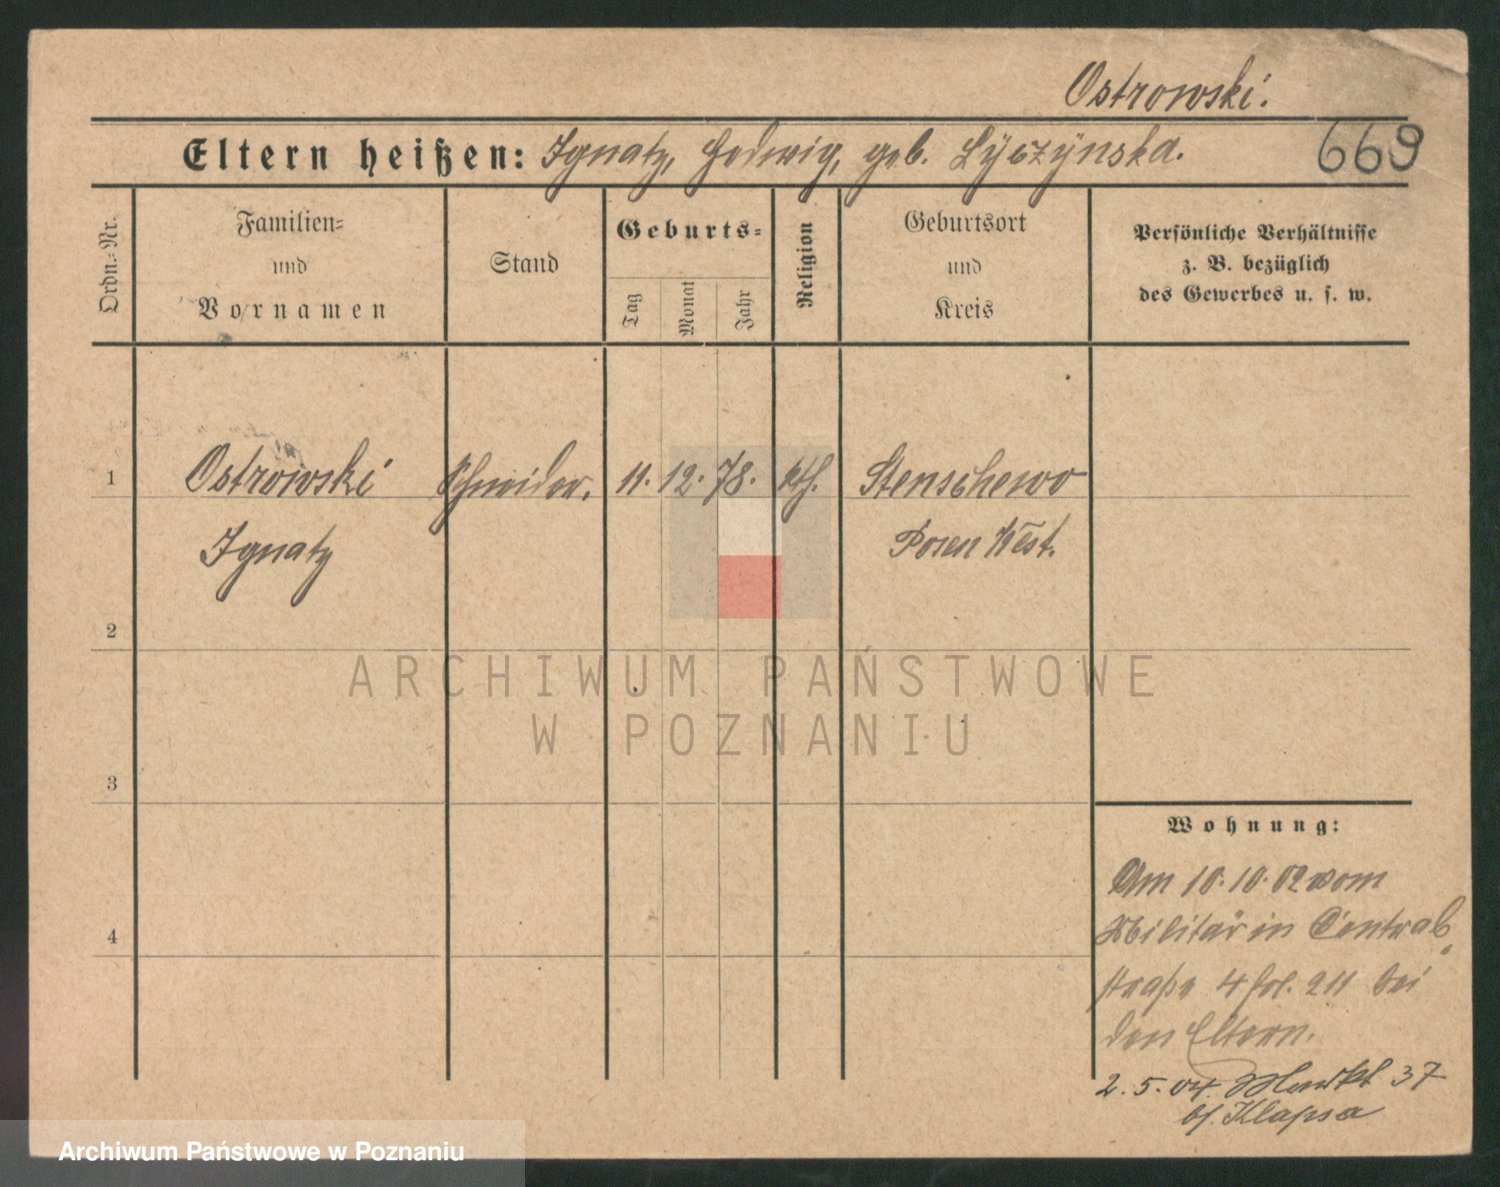 Ostrowski.
Eltern heißen: Ignatz, Hedwig, geb. Lyczynska.
669
Ordn.-Nr.
Familien-
und
Vornamen
Stand
Geburts-
Tag
Monat
Jahr
Religion
Geburtsort
und
Kreis
Persönliche Verhältnisse
z. B. bezüglich
des Gewerbes u. s. w.
1 Ostrowski Schneider. 11. 12. 78. kth. Stenschewo
Ignatz Posen West.
2
ARCHIWUM PAŃSTWOWE
W POZNANIU
3
Wohnung:
Am 10.10.02 vom
Militär in Central
straße 4 fol. 211 bei
den Eltern.
4
2.5.04. Markt 37
bf. Klapsa
Archiwum Państwowe w Poznaniu